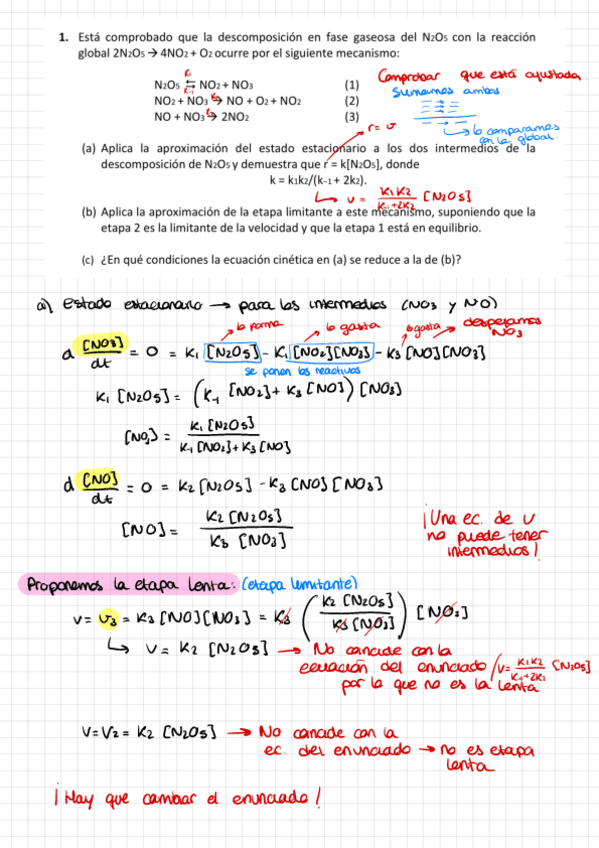 1. Está comprobado que la descomposición en fase gaseosa del N2O5 con la reacción
global 2N2O5 → 4NO2 + O2 ocurre por el siguiente mecanismo:
K1
N2O5 ⇄ NO2 + NO3 (1)
K-1
Comprobar que está ajustada
Sumamos ambas
K2
NO2 + NO3 → NO + O2 + NO2 (2)
K3
NO + NO3 → 2NO2 (3)
→ lo comparamos
con la global.
r = v
(a) Aplica la aproximación del estado estacionario a los dos intermedios de la
descomposición de N2O5 y demuestra que r = k[N2O5], donde
k = k1k2/(k−1 + 2k2).
↳ v = K1K2/K-1+2K2 [N2O5]
(b) Aplica la aproximación de la etapa limitante a este mecanismo, suponiendo que la
etapa 2 es la limitante de la velocidad y que la etapa 1 está en equilibrio.
(c) ¿En qué condiciones la ecuación cinética en (a) se reduce a la de (b)?
a) Estado estacionario → para los intermedios (NO3 y NO)
lo forma lo gasta lo gasta despejamos NO3
d [NO3]/dt = 0 = K1 [N2O5] - K-1 [NO2][NO3] - K3 [NO][NO3]
se ponen los reactivos
K1 [N2O5] = (K-1 [NO2] + K3 [NO]) [NO3]
[NO3] = K1 [N2O5] / K-1 [NO2] + K3 [NO]
d [NO]/dt = 0 = K2 [N2O5] - K3 [NO] [NO3]
[NO] = K2 [N2O5] / K3 [NO3]
¡Una ec. de v
no puede tener
intermedios!
Proponemos la etapa lenta: (etapa limitante)
v = v3 = K3 [NO][NO3] = K3 (K2 [N2O5] / K3 [NO3]) [NO3]
↳ v = K2 [N2O5] → No concide con la
ecuación del enunciado (v = K1K2/K-1+2K2 [N2O5]
por lo que no es la lenta
v = v2 = K2 [N2O5] → No concide con la
ec. del enunciado → no es etapa
lenta
¡Hay que cambiar el enunciado!